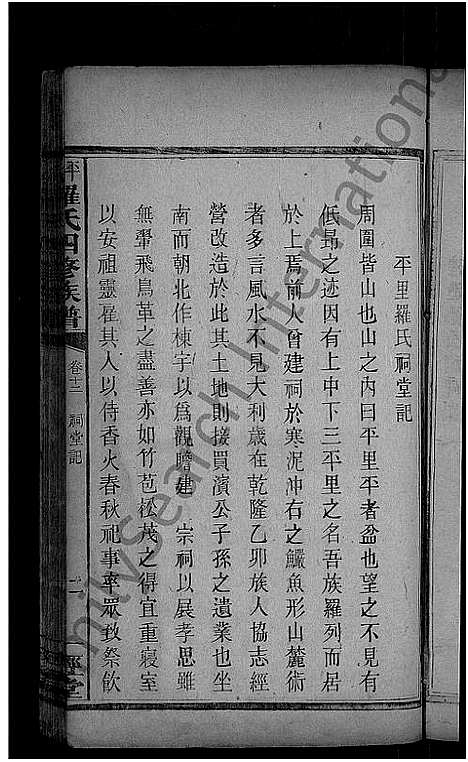 平里羅氏祠堂記
周圍皆山也山之內曰平里平者盆也望之不見有
低昻之迹因有上中下三平里之名吾族羅列而居
於上焉前人曾建祠於寒泥冲右之鱖魚形山麓術
者多言風水不見大利歲在乾隆乙卯族人協志經
營改造於此其土地則接買濱公子孫之遺業也坐
南而朝北作棟宇以爲觀瞻建 宗祠以展孝思雖
無翬飛鳥革之盡善亦如竹苞松茂之得宜重寢室
以安祖靈雇其人以侍香火春秋祀事率眾致祭飲
平羅氏四修族譜 卷十二 祠堂記 二
mlvSearch International